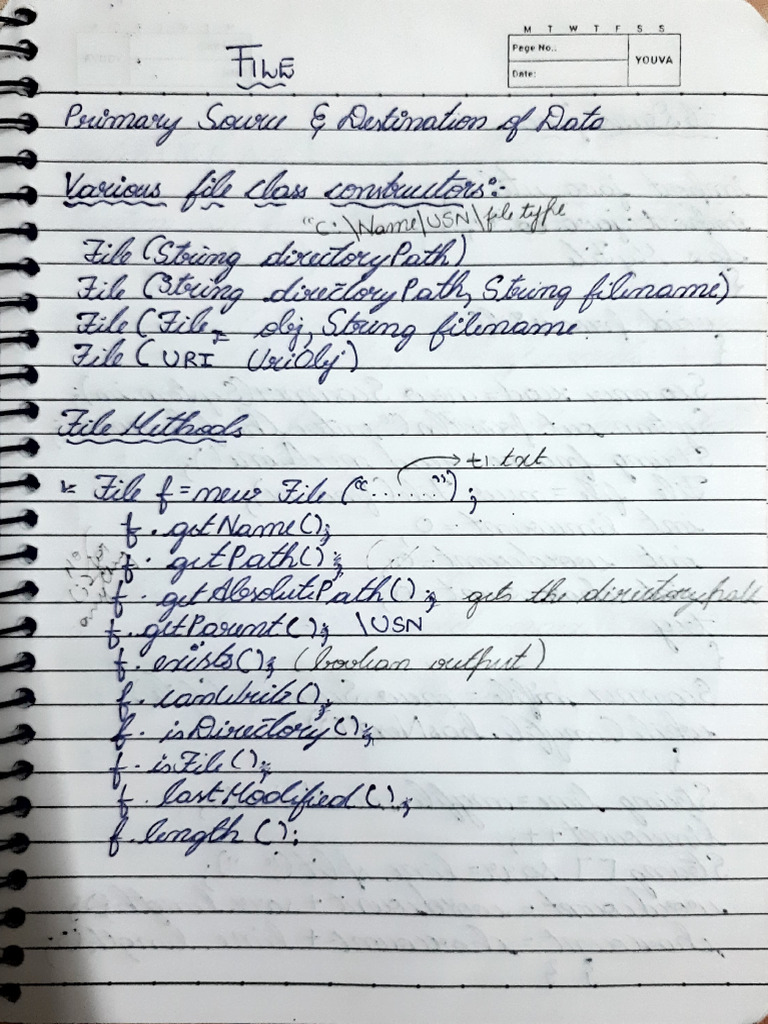 M T W T F S S
Page No.:
YOUVA
Date:
FILE
Primary Source & Destination of Data
Various file class constructors:-
"C:\Name\USN\file type
File (String directoryPath)
File (String directoryPath, String filename)
File (File obj, String filename
File (URI UriObj)
File Methods
→ t1.txt
File f = new File ("......");
f. getName();
f. getPath();
f. getAbsolutePath(); gets the directory path
f. getParent(); \USN
f. exists(); (boolean output)
f. canWrite();
f. isDirectory();
f. isFile();
f. lastModified();
f. length();